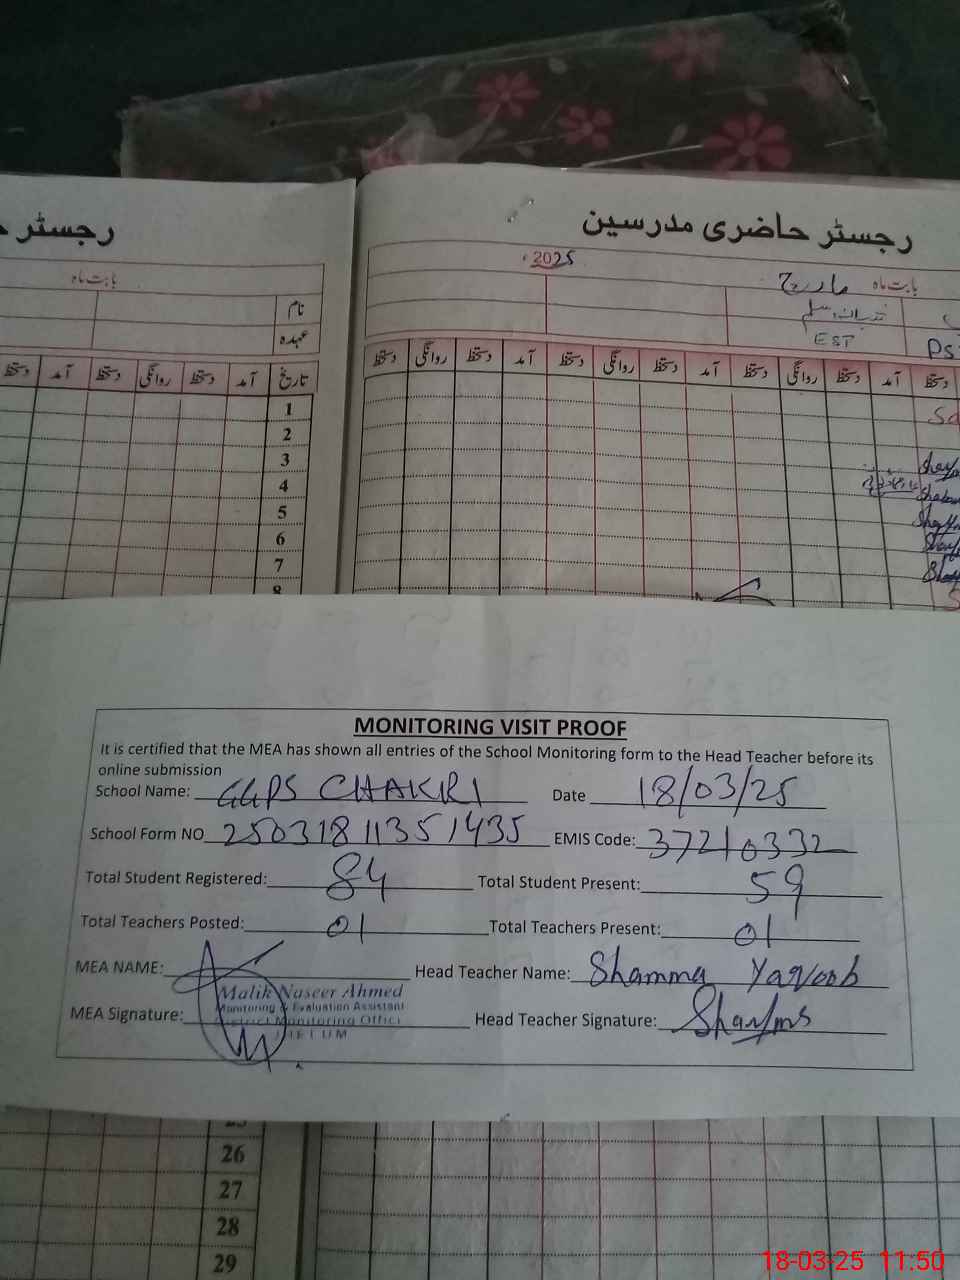 رجسٹر حاضری مدرسین
رجسٹر
2025ء
بابت ماہ مارچ
بابت ماہ
نام
عہدہ
EST
دستخط روانگی دستخط آمد دستخط روانگی دستخط آمد دستخط روانگی دستخط آمد دستخط
تاریخ آمد دستخط روانگی دستخط آمد دستخط
1
2
3
4
5
6
7
8
MONITORING VISIT PROOF
It is certified that the MEA has shown all entries of the School Monitoring form to the Head Teacher before its
online submission
School Name: GGPS CHAKRI Date 18/03/25
School Form NO 25031811351435 EMIS Code: 37210332
Total Student Registered: 84 Total Student Present: 59
Total Teachers Posted: 01 Total Teachers Present: 01
MEA NAME: Head Teacher Name: Shamma Yaqoob
Malik Naseer Ahmed
Monitoring & Evaluation Assistant
District Monitoring Office
JHELUM
MEA Signature: Head Teacher Signature:
25
26
27
28
29
18-03-25 11:50